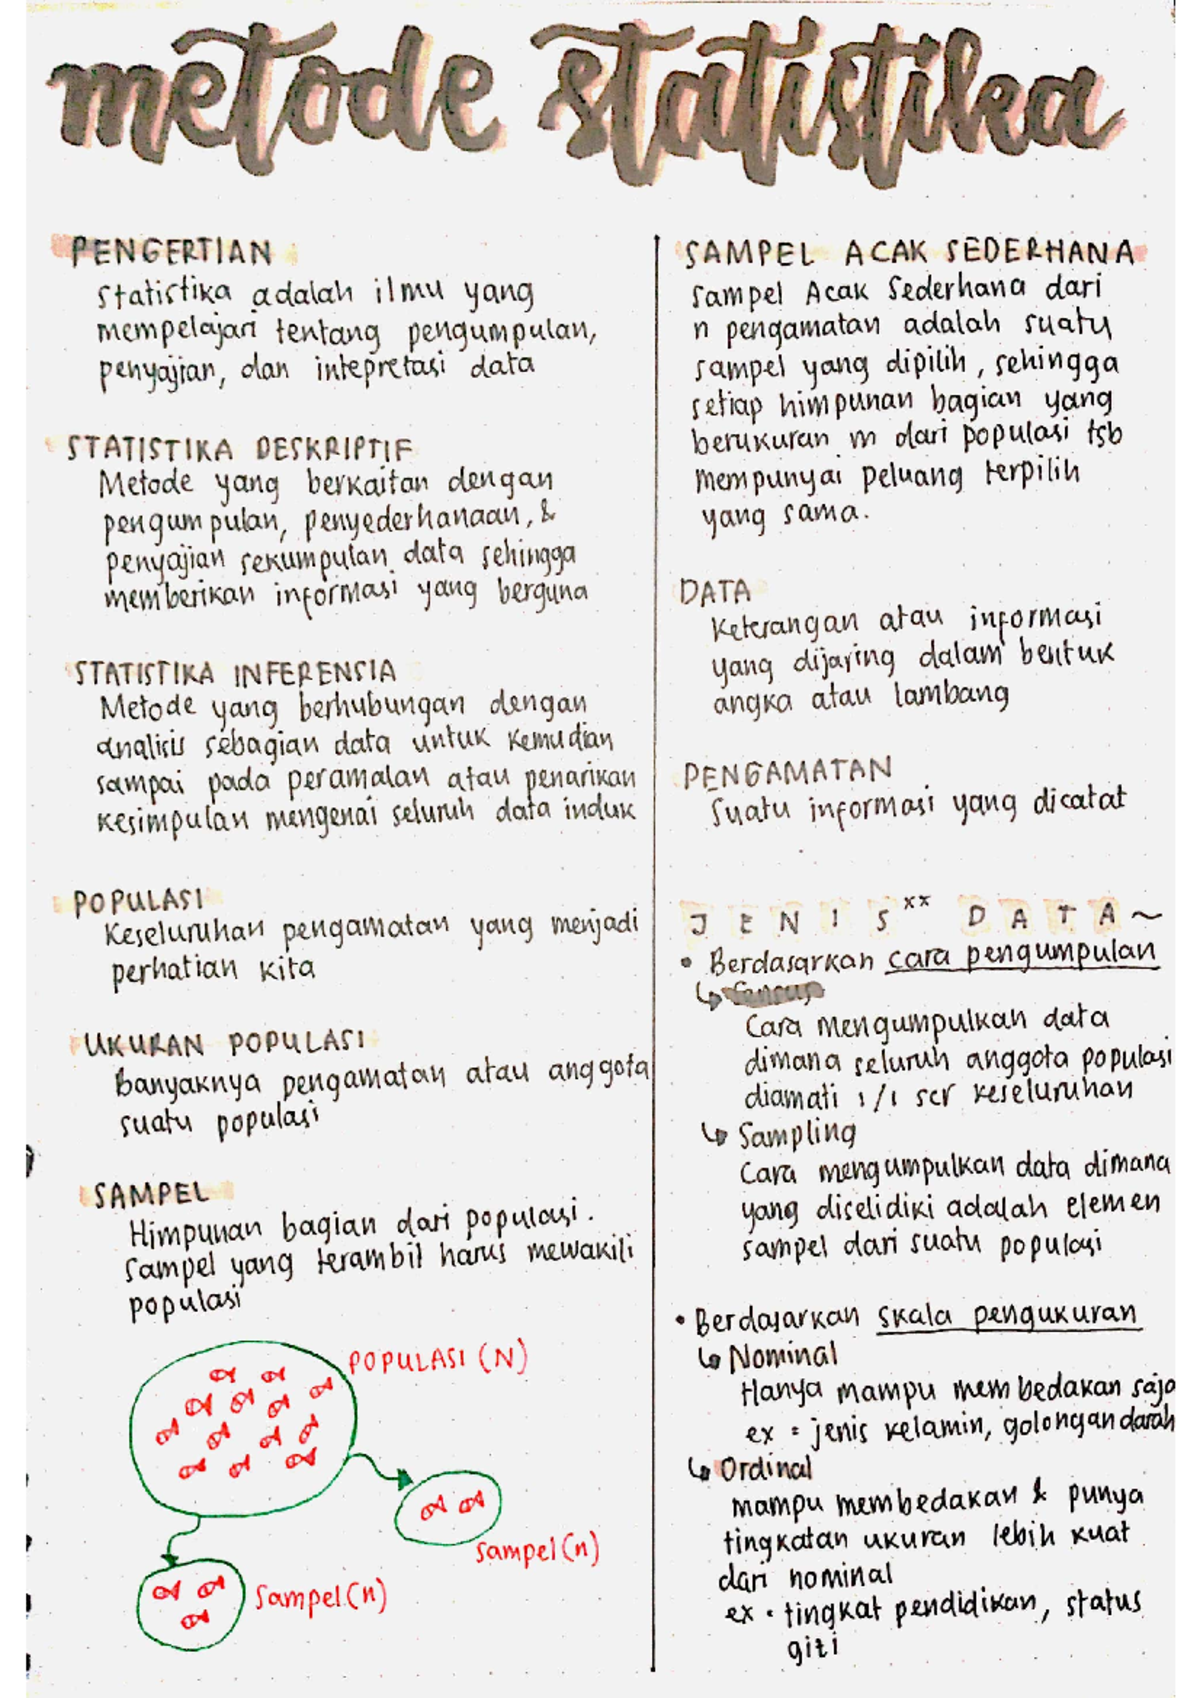 metode statistika
PENGERTIAN
Statistika adalah ilmu yang
mempelajari tentang pengumpulan,
penyajian, dan intepretasi data
STATISTIKA DESKRIPTIF
Metode yang berkaitan dengan
pengumpulan, penyederhanaan, &
penyajian sekumpulan data sehingga
memberikan informasi yang berguna
STATISTIKA INFERENSIA
Metode yang berhubungan dengan
analisis sebagian data untuk kemudian
sampai pada peramalan atau penarikan
kesimpulan mengenai seluruh data induk
POPULASI
Keseluruhan pengamatan yang menjadi
perhatian kita
UKURAN POPULASI
Banyaknya pengamatan atau anggota
suatu populasi
SAMPEL
Himpunan bagian dari populasi.
Sampel yang terambil harus mewakili
populasi
POPULASI (N)
Sampel (n)
Sampel (n)
SAMPEL ACAK SEDERHANA
Sampel Acak Sederhana dari
n pengamatan adalah suatu
sampel yang dipilih, sehingga
setiap himpunan bagian yang
berukuran m dari populasi tsb
mempunyai peluang terpilih
yang sama.
DATA
Keterangan atau informasi
yang dijaring dalam bentuk
angka atau lambang
PENGAMATAN
Suatu informasi yang dicatat
JENIS xx DATA~
• Berdasarkan cara pengumpulan
↳
Cara mengumpulkan data
dimana seluruh anggota populasi
diamati 1/1 scr keseluruhan
↳ Sampling
Cara mengumpulkan data dimana
yang diselidiki adalah elemen
sampel dari suatu populasi
• Berdasarkan skala pengukuran
↳ Nominal
Hanya mampu membedakan saja
ex : jenis kelamin, golongan darah
↳ Ordinal
mampu membedakan & punya
tingkatan ukuran lebih kuat
dari nominal
ex : tingkat pendidikan, status
gizi